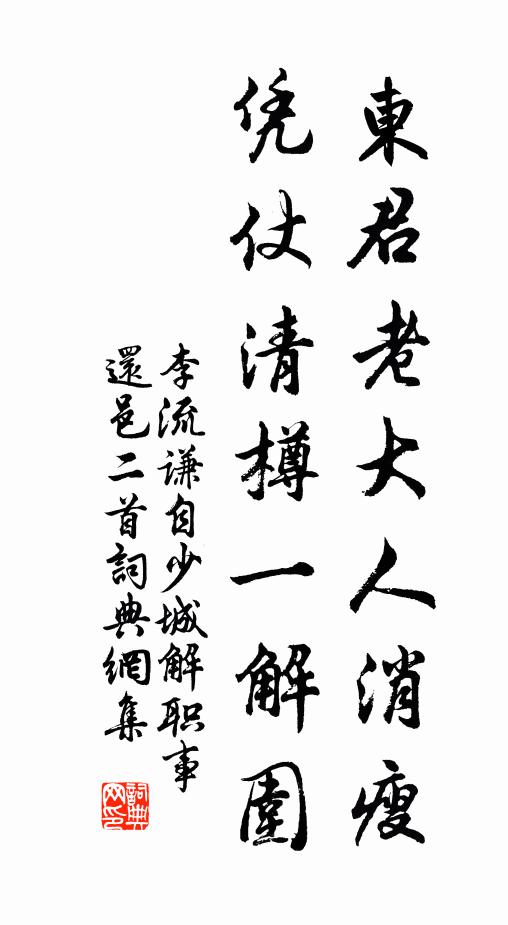 東君老大人消瘦
凭仗清樽一解圍
李流谦自少城解职事
還邑二首詞典網集
詞典
网印